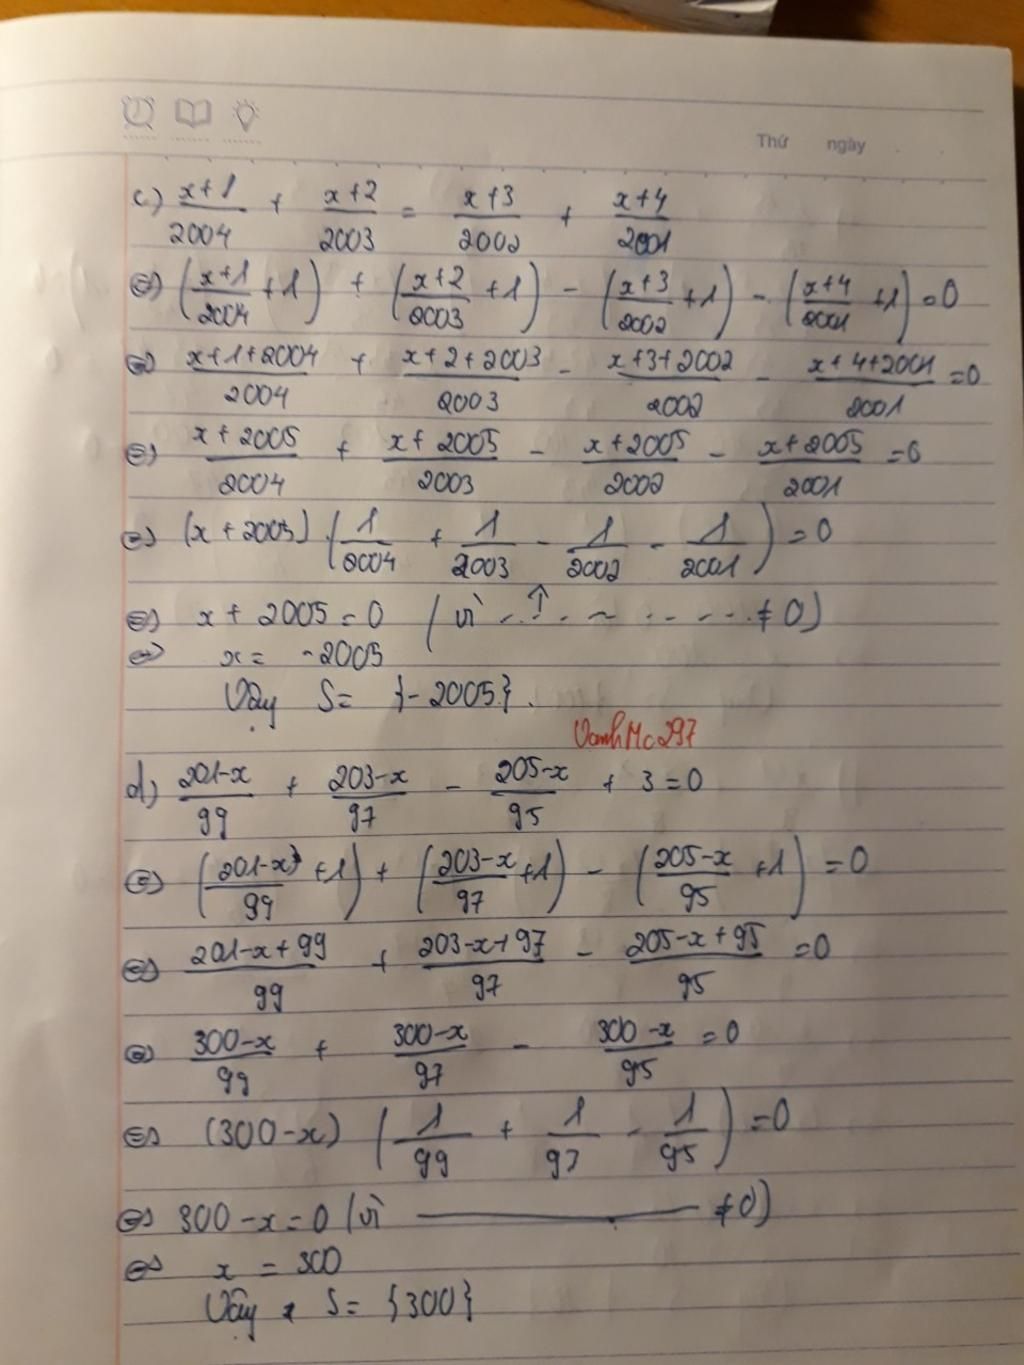 Thứ ngày
c) \frac{x+1}{2004} + \frac{x+2}{2003} = \frac{x+3}{2002} + \frac{x+4}{2001}
⇔ (\frac{x+1}{2004} + 1) + (\frac{x+2}{2003} + 1) - (\frac{x+3}{2002} + 1) - (\frac{x+4}{2001} + 1) = 0
⇔ \frac{x+1+2004}{2004} + \frac{x+2+2003}{2003} - \frac{x+3+2002}{2002} - \frac{x+4+2001}{2001} = 0
⇔ \frac{x+2005}{2004} + \frac{x+2005}{2003} - \frac{x+2005}{2002} - \frac{x+2005}{2001} = 0
⇔ (x+2005).(\frac{1}{2004} + \frac{1}{2003} - \frac{1}{2002} - \frac{1}{2001}) = 0
⇔ x + 2005 = 0 (vì ..↑.. ≠ 0)
⇔ x = -2005
Vậy S = {-2005}.
VanhMc297
d) \frac{201-x}{99} + \frac{203-x}{97} - \frac{205-x}{95} + 3 = 0
⇔ (\frac{201-x}{99} + 1) + (\frac{203-x}{97} + 1) - (\frac{205-x}{95} + 1) = 0
⇔ \frac{201-x+99}{99} + \frac{203-x+97}{97} - \frac{205-x+95}{95} = 0
⇔ \frac{300-x}{99} + \frac{300-x}{97} - \frac{300-x}{95} = 0
⇔ (300-x) (\frac{1}{99} + \frac{1}{97} - \frac{1}{95}) = 0
⇔ 300-x = 0 (vì —— ≠ 0)
⇔ x = 300
Vậy S = {300}